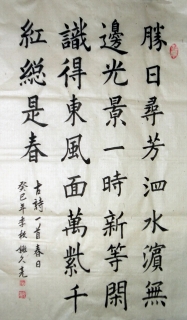 勝日尋芳泗水濵無
邊光景一時新等閑
識得東風面萬紫千
紅総是春
古詩一首春日
癸巳年季秋